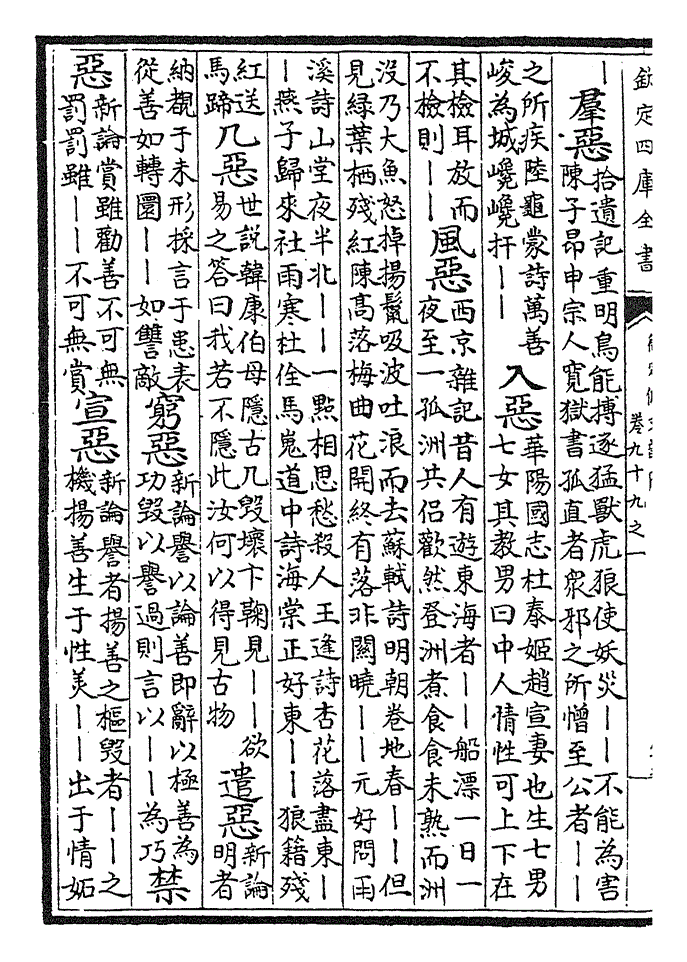 欽定四庫全書
卷九十九之一
丨
羣惡
拾遺記重明鳥能搏逐猛獸虎狼使妖災丨丨不能為害
陳子昂申宗人寃獄書孤直者衆邪之所憎至公者丨丨
之所疾陸龜蒙詩萬善
峻為城巉巉扞丨丨
入惡
華陽國志杜泰姬趙宣妻也生七男
七女其教男曰中人情性可上下在
其檢耳放而
不檢則丨丨
風惡
西京雜記昔人有遊東海者丨丨船漂一日一
夜至一孤洲共侶歡然登洲煮食食未熟而洲
没乃大魚怒掉揚鬛吸波吐浪而去蘇軾詩明朝卷地春丨丨但
見緑葉栖殘紅陳高落梅曲花開終有落非關曉丨丨元好問雨
溪詩山堂夜半北丨丨一點相思愁殺人王逢詩杏花落盡東丨
丨燕子歸來社雨寒杜佺馬嵬道中詩海棠正好東丨丨狼籍殘
紅送
馬蹄
几惡
世説韓康伯母隱古几毁壞卞鞠見丨丨欲
易之答曰我若不隱此汝何以得見古物
遣惡
新論
明者
納覩于未形採言于患表
從善如轉圜丨丨如讐敵
窮惡
新論譽以論善即辭以極善為
功毁以譽過則言以丨丨為巧
禁
惡
新論賞雖勸善不可無
罰罰雖丨丨不可無賞
宣惡
新論譽者揚善之樞毁者丨丨之
機揚善生于性美丨丨出于情妬